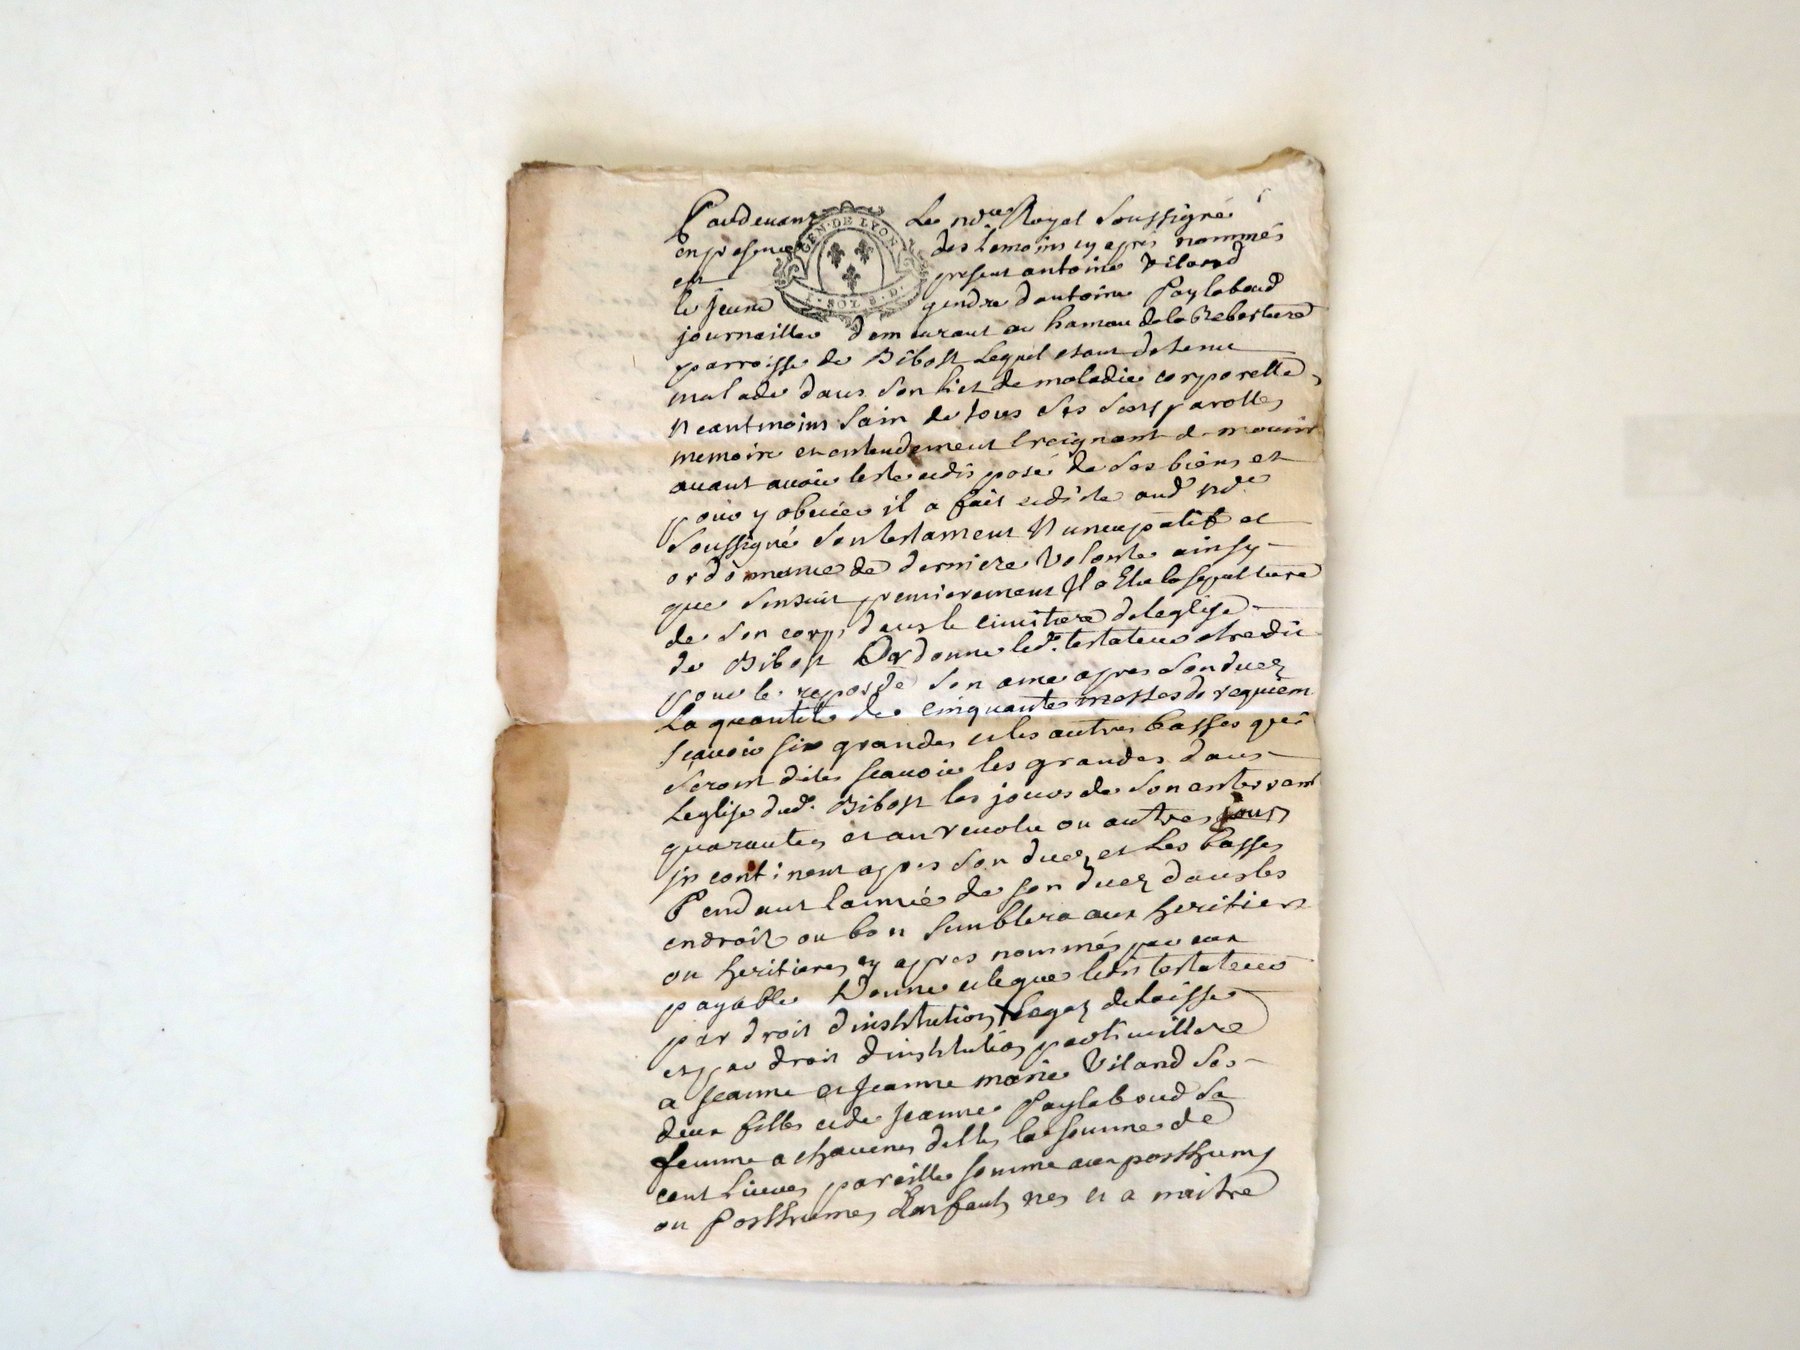 Pardevant Le nore Royal soussigné
en presence des temoins cy apres nommés
GEN. DE LYON
SOL. 8. D.
est present antoine Vilard
le jeune gendre dantoine Paylaboud
journaillier demeurant au hameau de la
parroisse de Bibost Lequel etant detenu
malade dans son lict de maladie corporelle
Neantmoins sain de tous ses sens parolles
memoire et entendement Creignant de mourir
avant avoir teste et disposé de ses biens et
pour y obvier il a fait et dicte aud nre
soussigné son testament Nuncupatif et
ordonnance de derniere Volonte ainsy
que sensuit premierement Il a Elu la sepulture
de son corps dans le cimitiere de leglise
de Bibost Ordonne led. testateur estre dit
pour le repos de son ame apres son decez
La quantite de cinquante messes de requiem
scavoir six grandes et les autres basses qui
seront dites scavoir les grandes dans
Leglise dud. Bibost les jours de son enterrem
quarantes et an revolu ou autres jours
incontinent apres son decez et Les basses
Pendant lannée de son decez dans les
endroit ou bon semblera aux heritiers
ou heritieres cy apres nommés par eux
payable Donne et legue ledit testateur
par droit dinstitution legaz delaisse
et par droit dinstitution particuillere
a jeanne et jeanne marie Vilard ses
deux filles et de jeanne Paylaboud sa
femme a chacunes delles la somme de
cent livres pareille somme aux posthumes
ou Posthumes Enfants nes et a naitre